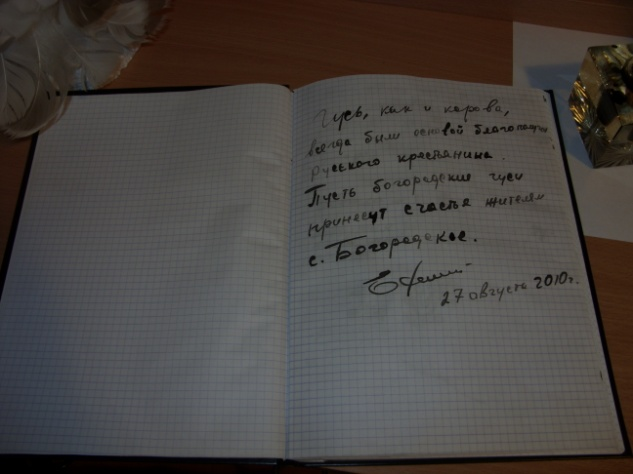 Гусь, как и корова,
всегда были основой благополучия
руського крестьянина.
Пусть богородские гуси
принесут счастье жителям
с. Богородское.
27 августа 2010г.